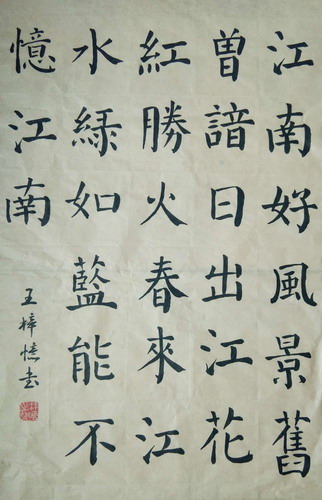 江南好風景舊
曾諳日出江花
紅勝火春來江
水綠如藍能不
憶江南
王梓憶书